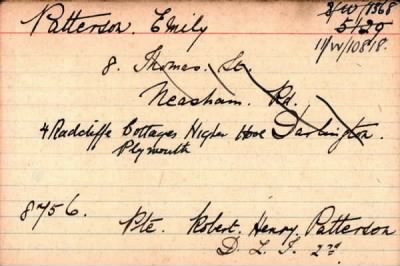 Patterson, Emily
2/W/1568
5/29
11/W/10818.
8. Thomas. St.
Neasham. Rd.
Darlington.
4 Radcliffe Cottages Higher Hooe
Plymouth
8756.
Pte. Robert. Henry. Patterson
D. L. I. 2nd